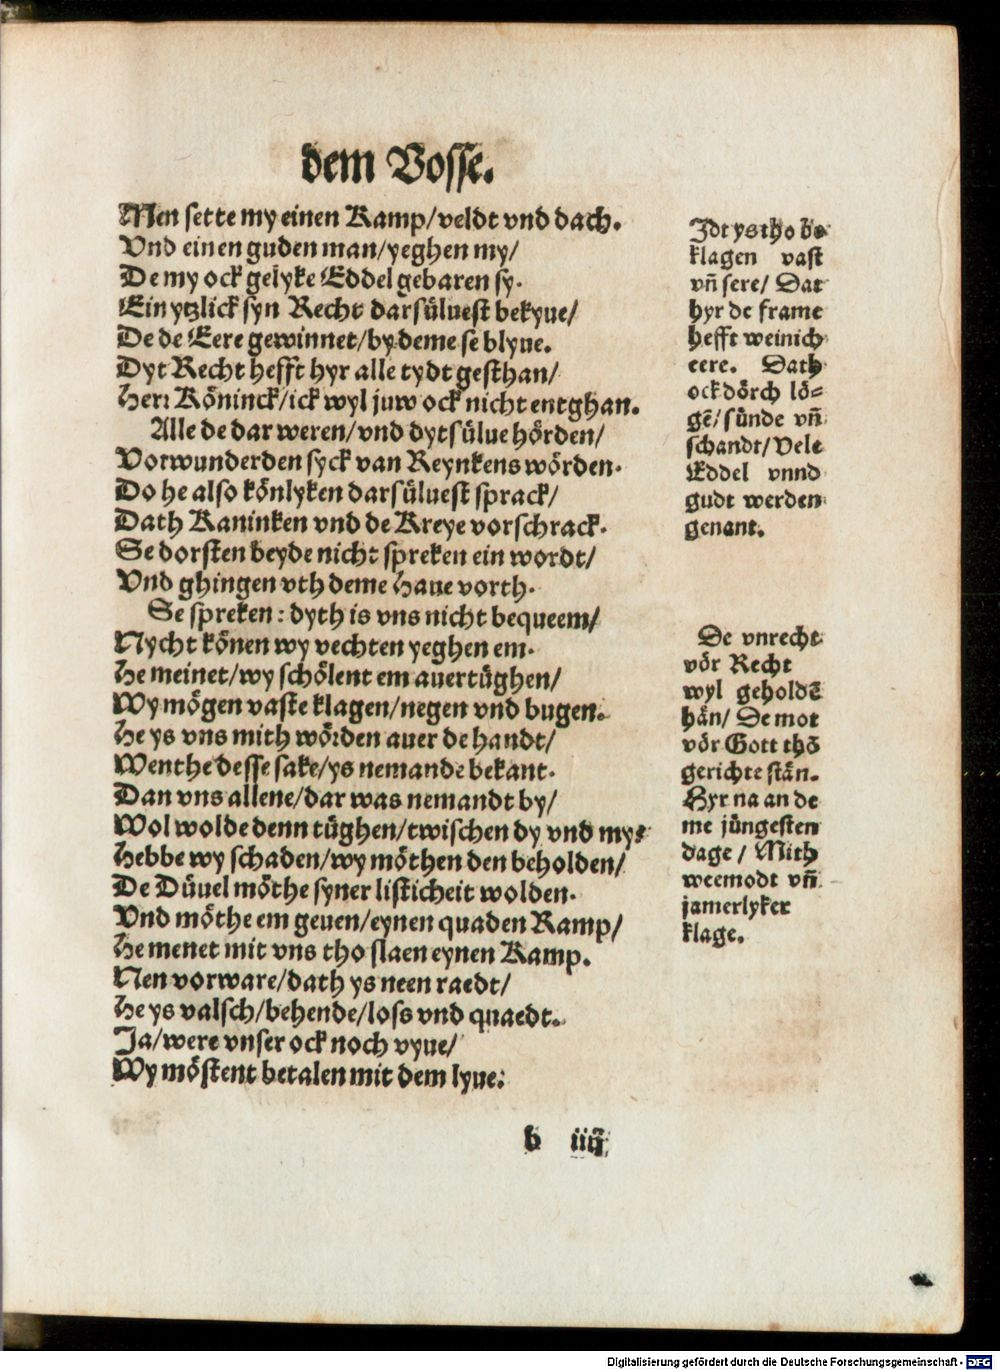 dem Vosse.
Men sette my einen Kamp/veldt vnd dach.
Vnd einen guden man/yeghen my/
De my ock gelyke Eddel gebaren sy.
Ein ytzlick syn Recht darsüluest bekyue/
De de Eere gewinnet/by deme se blyue.
Dyt Recht hefft hyr alle tydt gesthan/
Herr Köninck/ick wyl juw ock nicht entghan.
Alle de dar weren/vnd dyt sülue hörden/
Vorwunderden syck van Reynkens wörden.
Do he also könlyken darsüluest sprack/
Dath Kaninken vnd de Kreye vorschrack.
Se dorsten beyde nicht spreken ein wordt/
Vnd ghingen vth deme Haue vorth.
Se spreken: dyth is vns nicht bequeem/
Nycht könen wy vechten yeghen em.
He meinet/wy schölent em auertüghen/
Wy mögen vaste klagen/negen vnd bugen.
He ys vns mith wörden auer de handt/
Wenthe desse sake/ys nemande bekant.
Dan vns allene/dar was nemandt by/
Wol wolde denn tüghen/twischen dy vnd my?
Hebbe wy schaden/wy möthen den beholden/
De Düuel möthe syner listicheit wolden.
Vnd möthe em geuen/eynen quaden Ramp/
He menet mit vns tho slaen eynen Kamp.
Nen vorware/dath ys neen raedt/
He ys valsch/behende/loss vnd quaedt.
Ja/were vnser ock noch vyue/
Wy möstent betalen mit dem lyue.
Idt ys tho be
klagen vast
vñ sere/ Dat
hyr de frame
hefft weinich
eere. Dath
ock dörch lö=
gẽ/sünde vñ
schandt/Vele
Eddel vnnd
gudt werden
genant.
De vnrecht
vör Recht
wyl geholdẽ
hän/ De mot
vör Gott thõ
gerichte stän.
Hyr na an de
me jüngesten
dage / Mith
weemodt vñ
jamerlyker
klage.
b iiij
Digitalisierung gefördert durch die Deutsche Forschungsgemeinschaft - DFG